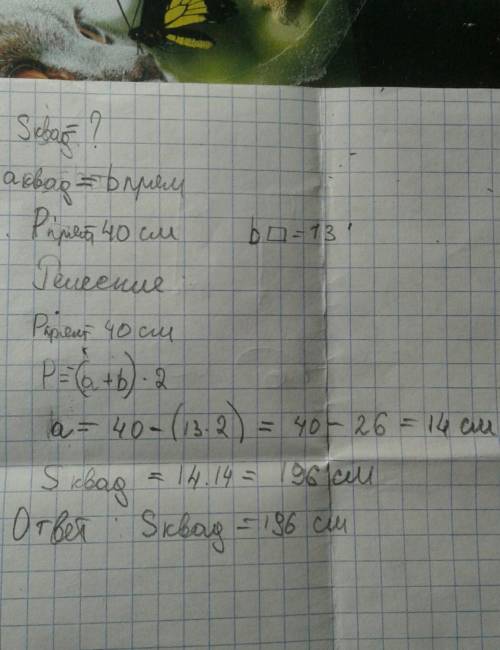 Sквад= ?
aквад = bпрям
Pпрям= 40 см b▭ = 13
Решение:
Pпрям= 40 см
P = (a+b) · 2
a = 40 - (13·2) = 40 - 26 = 14 см
S квад = 14·14 = 196 см
Ответ: Sквад = 196 см